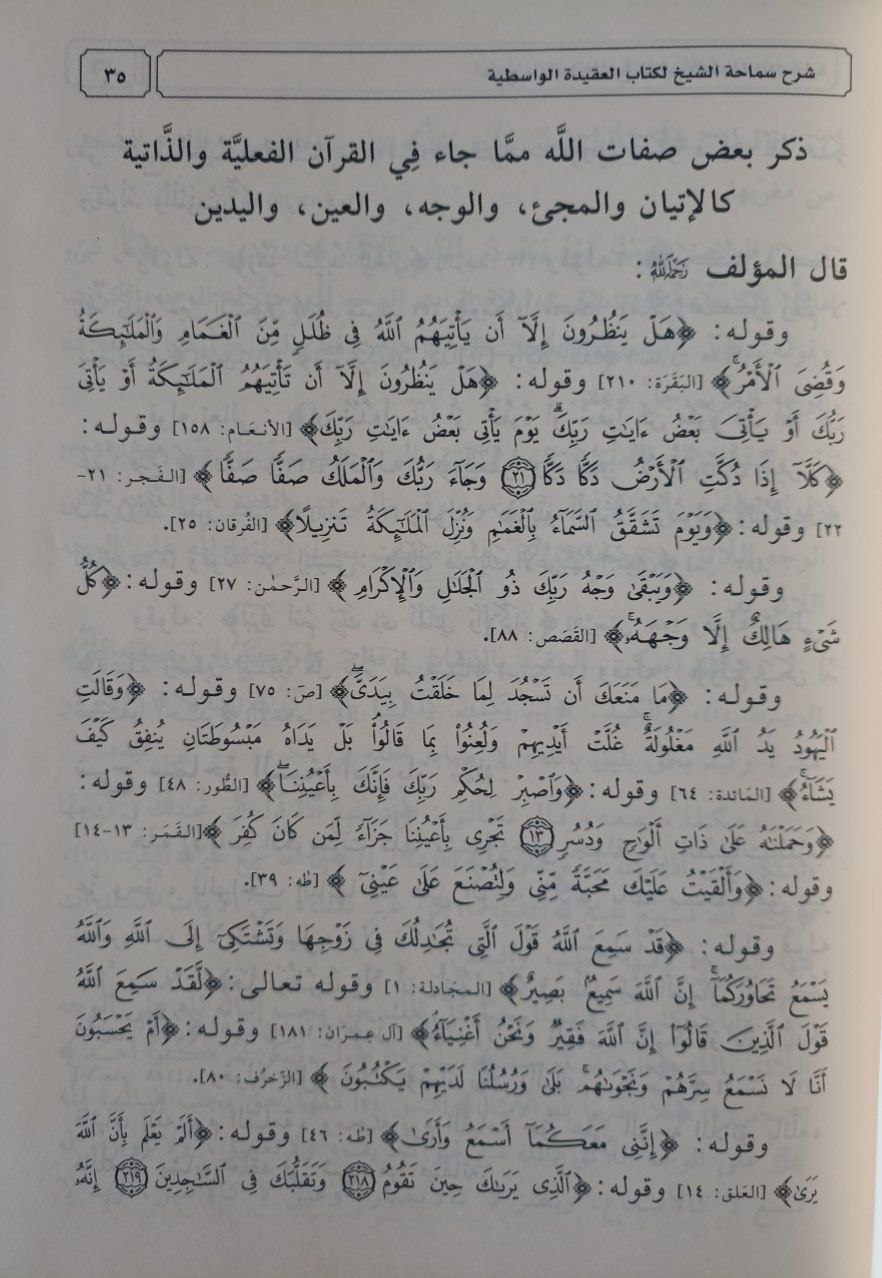 شرح سماحة الشيخ لكتاب العقيدة الواسطية
٣٥
ذكر بعض صفات اللَّه ممَّا جاء فِي القرآن الفعليَّة والذَّاتية
كالإتيان والمجئ، والوجه، والعين، واليدين
قال المؤلف رَحِمَهُ اللَّهُ :
وقوله: ﴿هَلْ يَنظُرُونَ إِلَّآ أَن يَأْتِيَهُمُ ٱللَّهُ فِي ظُلَلٍ مِّنَ ٱلْغَمَامِ وَٱلْمَلَٰٓئِكَةُ
وَقُضِيَ ٱلْأَمْرُ﴾ [البَقَرَة: ٢١٠] وقوله: ﴿هَلْ يَنظُرُونَ إِلَّآ أَن تَأْتِيَهُمُ ٱلْمَلَٰٓئِكَةُ أَوْ يَأْتِيَ
رَبُّكَ أَوْ يَأْتِيَ بَعْضُ ءَايَٰتِ رَبِّكَ يَوْمَ يَأْتِي بَعْضُ ءَايَٰتِ رَبِّكَ﴾ [الأنعَام: ١٥٨] وقوله:
﴿كَلَّآ إِذَا دُكَّتِ ٱلْأَرْضُ دَكًّا دَكًّا ٢١ وَجَآءَ رَبُّكَ وَٱلْمَلَكُ صَفًّا صَفًّا﴾ [الفَجر: ٢١-
٢٢] وقوله: ﴿وَيَوْمَ تَشَقَّقُ ٱلسَّمَآءُ بِٱلْغَمَٰمِ وَنُزِّلَ ٱلْمَلَٰٓئِكَةُ تَنزِيلًا﴾ [الفُرقان: ٢٥].
وقوله: ﴿وَيَبْقَىٰ وَجْهُ رَبِّكَ ذُو ٱلْجَلَٰلِ وَٱلْإِكْرَامِ﴾ [الرَّحمٰن: ٢٧] وقوله: ﴿كُلُّ
شَيْءٍ هَالِكٌ إِلَّا وَجْهَهُۥ﴾ [القَصَص: ٨٨].
وقوله: ﴿مَا مَنَعَكَ أَن تَسْجُدَ لِمَا خَلَقْتُ بِيَدَيَّ﴾ [صٓ: ٧٥] وقوله: ﴿وَقَالَتِ
ٱلْيَهُودُ يَدُ ٱللَّهِ مَغْلُولَةٌ غُلَّتْ أَيْدِيهِمْ وَلُعِنُوا۟ بِمَا قَالُوا۟ بَلْ يَدَاهُ مَبْسُوطَتَانِ يُنفِقُ كَيْفَ
يَشَآءُ﴾ [المَائدة: ٦٤] وقوله: ﴿وَٱصْبِرْ لِحُكْمِ رَبِّكَ فَإِنَّكَ بِأَعْيُنِنَا﴾ [الطُّور: ٤٨] وقوله:
﴿وَحَمَلْنَٰهُ عَلَىٰ ذَاتِ أَلْوَٰحٍ وَدُسُرٍ ١٣ تَجْرِي بِأَعْيُنِنَا جَزَآءً لِّمَن كَانَ كُفِرَ﴾ [القَمَر: ١٣-١٤]
وقوله: ﴿وَأَلْقَيْتُ عَلَيْكَ مَحَبَّةً مِّنِّي وَلِتُصْنَعَ عَلَىٰ عَيْنِيٓ﴾ [طه: ٣٩].
وقوله: ﴿قَدْ سَمِعَ ٱللَّهُ قَوْلَ ٱلَّتِي تُجَٰدِلُكَ فِي زَوْجِهَا وَتَشْتَكِيٓ إِلَى ٱللَّهِ وَٱللَّهُ
يَسْمَعُ تَحَاوُرَكُمَآ إِنَّ ٱللَّهَ سَمِيعٌۢ بَصِيرٌ﴾ [المجَادلة: ١] وقوله تعالى: ﴿لَّقَدْ سَمِعَ ٱللَّهُ
قَوْلَ ٱلَّذِينَ قَالُوٓا۟ إِنَّ ٱللَّهَ فَقِيرٌ وَنَحْنُ أَغْنِيَآءُ﴾ [آل عِمرَان: ١٨١] وقوله: ﴿أَمْ يَحْسَبُونَ
أَنَّا لَا نَسْمَعُ سِرَّهُمْ وَنَجْوَىٰهُم بَلَىٰ وَرُسُلُنَا لَدَيْهِمْ يَكْتُبُونَ﴾ [الزّخرُف: ٨٠].
وقوله: ﴿إِنَّنِي مَعَكُمَآ أَسْمَعُ وَأَرَىٰ﴾ [طه: ٤٦] وقوله: ﴿أَلَمْ يَعْلَم بِأَنَّ ٱللَّهَ
يَرَىٰ﴾ [العَلق: ١٤] وقوله: ﴿ٱلَّذِي يَرَىٰكَ حِينَ تَقُومُ ٢١٨ وَتَقَلُّبَكَ فِي ٱلسَّٰجِدِينَ ٢١٩ إِنَّهُۥ